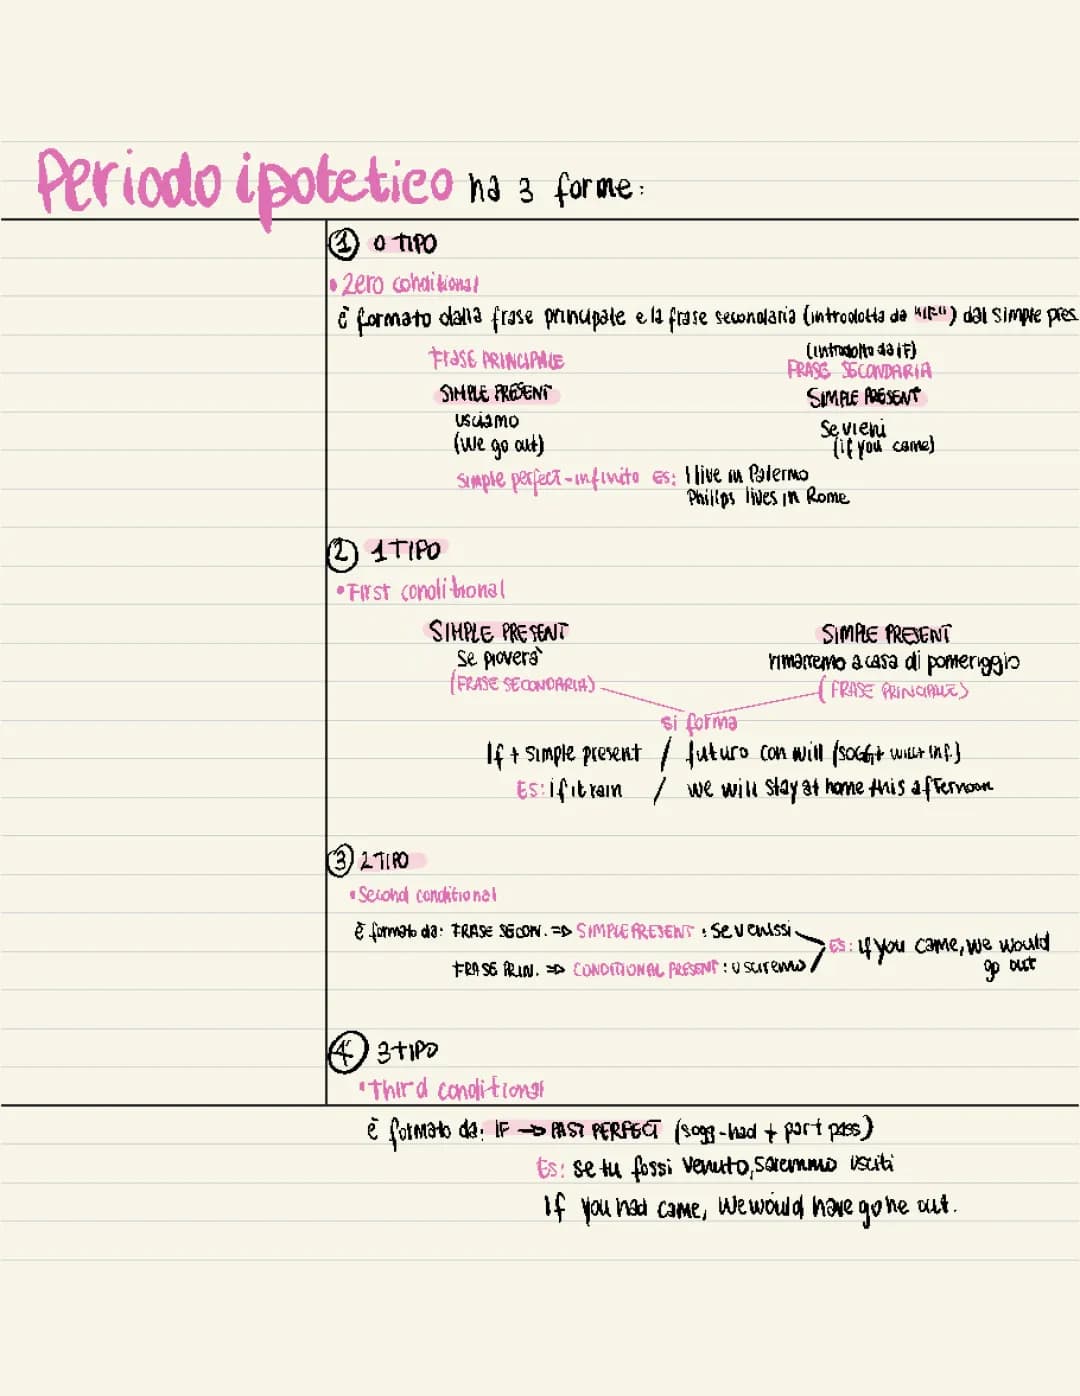 Periodo ipotetico ha 3 forme:
1 0 TIPO
• Zero conditional
è formato dalla frase principale e la frase secondaria (introdotta da "IF") dal simple pres
FRASE PRINCIPALE
SIMPLE PRESENT
usciamo
(we go out)
(introdotto da IF)
FRASE SECONDARIA
SIMPLE PRESENT
Se vieni
(if you came)
simple perfect-infinito Es: I live in Palermo
Philips lives in Rome
2 1 TIPO
• First conditional
SIMPLE PRESENT
Se pioverà
(FRASE SECONDARIA)
SIMPLE PRESENT
rimarremo a casa di pomeriggio
(FRASE PRINCIPALE)
si forma
If + simple present / futuro con will (sogg+ will+ inf.)
Es: if it rain / we will stay at home this afternoon
3 2 TIPO
• Second conditional
è formato da: FRASE SECON. => SIMPLE PRESENT : se venissi
FRASE PRIN. => CONDITIONAL PRESENT : usciremo
Es: if you came, we would
go out
4 3 TIPO
• Third conditional
è formato da: IF → PAST PERFECT (sogg-had + part pass)
Es: se tu fossi venuto, saremmo usciti
If you had came, We would have gone out.